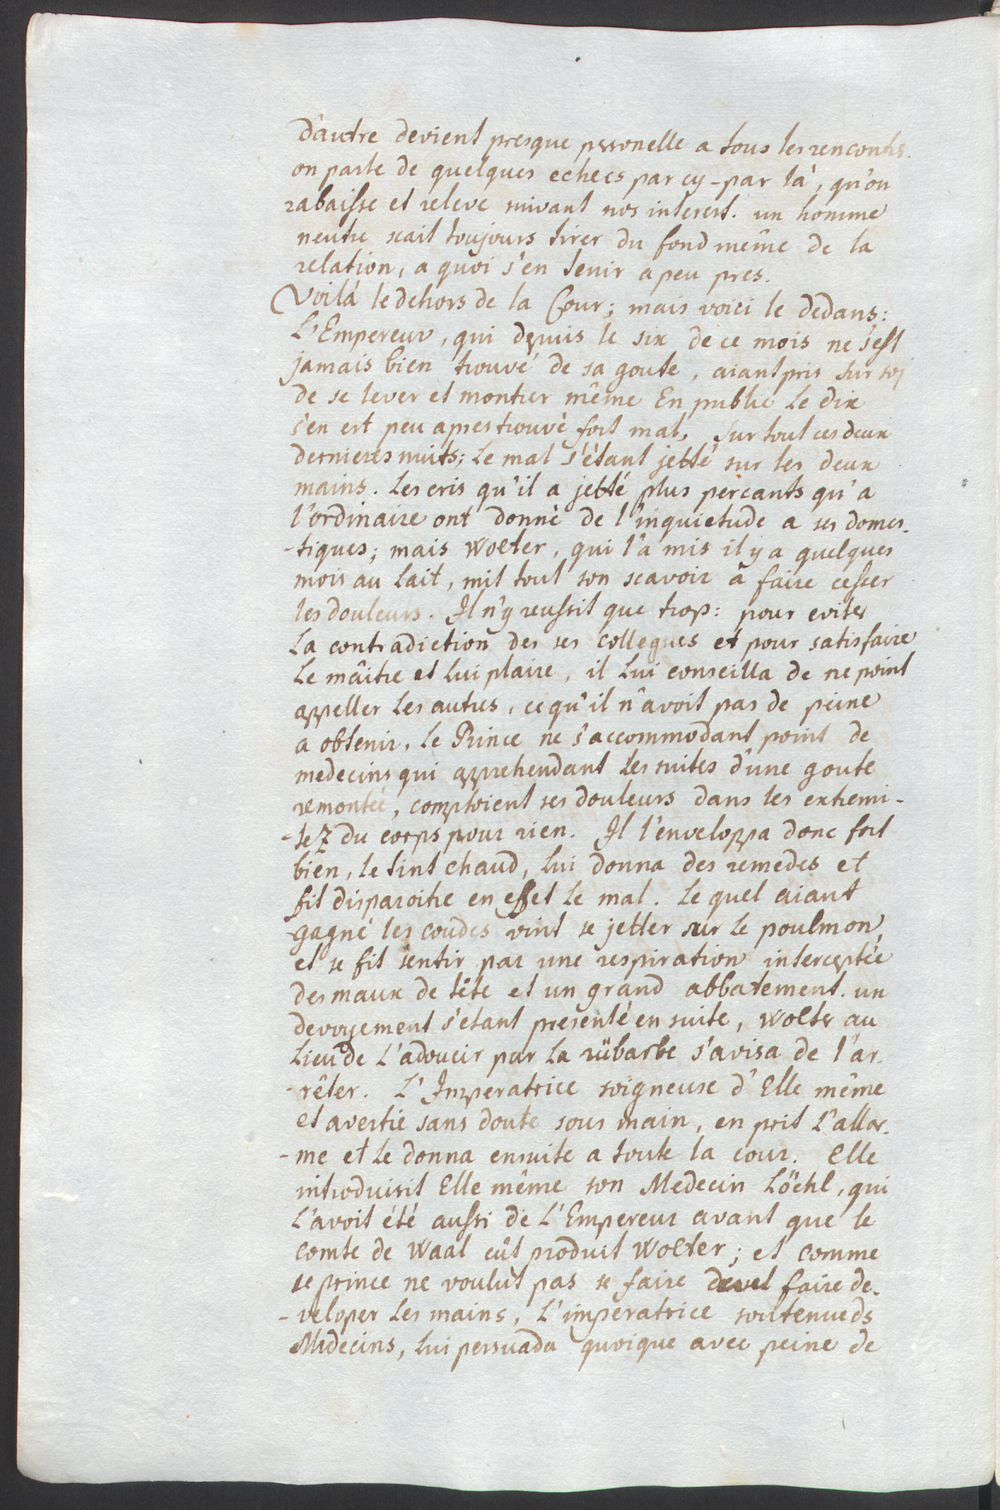 D'autre devient presque personelle a tous les rencontres.
on parle de quelques echecs par cy-par là, qu'on
rabaisse et releve suivant nos interest. un homme
neutre scait toujours tirer du fond même de la
relation, a quoi s'en tenir a peu pres.
Voilà le dehors de la Cour; mais voici le dedans:
L'Empereur, qui depuis le six de ce mois ne s'est
jamais bien trouvé de sa goute, aiant pris sur soi
de se lever et montrer même En public Le dix
s'en est peu apres trouvè fort mal, sur tout ces deux
dernieres nuits; Le mal s'étant jetté sur les deux
mains. Les cris qu'il a jetté plus percants qu'a
l'ordinaire ont donnè de l'inquietude a ses domes-
-tiques; mais Wolter, qui l'a mis il y a quelques
mois au Lait, mit tout son scavoir à faire cesser
les douleurs. Il n'y reussit que trop: pour eviter
La contradiction des ses Collegues et pour satisfaire
Le mâitre et Lui plaire, il Lui conseilla de ne point
appeller Les autres, ce qu'il n'avoit pas de peine
a obtenir, Le Prince ne s'accommodant point de
medecins qui apprehendant Les suites d'une goute
remontée, comptoient ses douleurs dans les extremi-
-tez du corps pour rien. Il l'enveloppa donc fort
bien, le tint chaud, Lui donna des remedes et
fit disparoitre en effet Le mal. Le quel aiant
gagné les coudes vint se jetter sur Le poulmon,
et se fit sentir par une respiration interceptée
des maux de tête et un grand abbatement. un
devoyement s'etant presenté en suite, Wolter au
Lieu de L'adoucir par La rübarbe s'avisa de l'ar-
-rêter. L'Imperatrice soigneuse d'Elle même
et avertie sans doute sous main, en prit L'allar-
-me et Le donna ensuite a toute la cour. Elle
introduisit Elle même son Medecin Löchl, qui
L'avoit été aussi de L'Empereur avant que le
Comte de Waal eût produit Wolter; et comme
se prince ne voulut pas se faire faire de-
-veloper Les mains, L'imperatrice soutenue ds
Medecins, Lui persuada quoique avec peine de